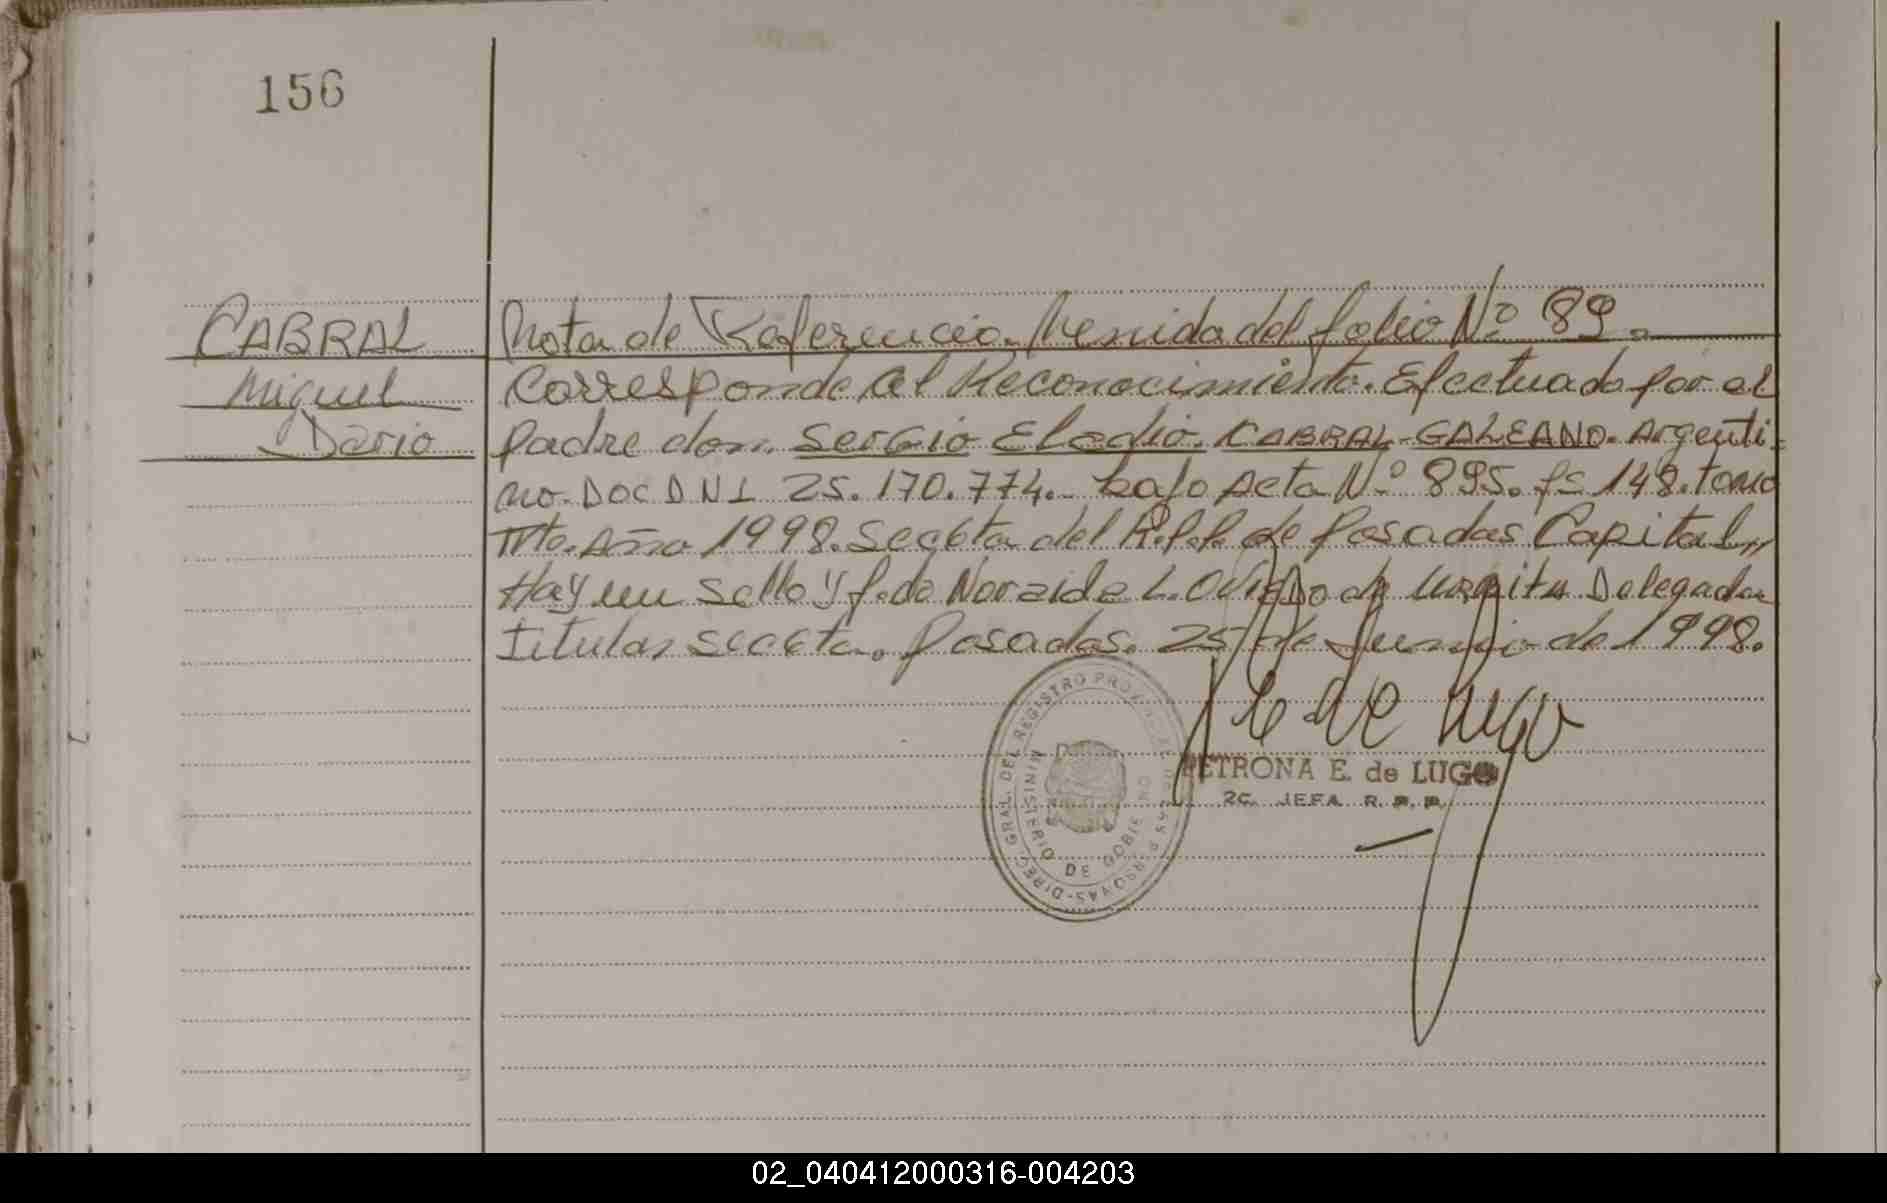 156
CABRAL
Miguel
Dario
Nota de Referencia. Venida del folio Nº 89.
Corresponde al Reconocimiento. Efectuado por el
padre don. Sergio Eladio. CABRAL-GALEANO. Argenti-
no. Doc DNI 25.170.774.- bajo Acta Nº 895. fs 148. tomo
Año 1998. Secc 6ta del R.P.P. de Posadas Capital,,
Hay un sello y f. do L. Oviedo de Delegada
titular secc 6ta. Posadas. 25 de Junio de 1998.
E de Lugo
PETRONA E. de LUGO
2C. JEFA R.P.P.
DIREC. GRAL. DEL REGISTRO PROVINCIAL DE LAS PERSONAS-
MINISTERIO DE GOBIERNO
02_040412000316-004203